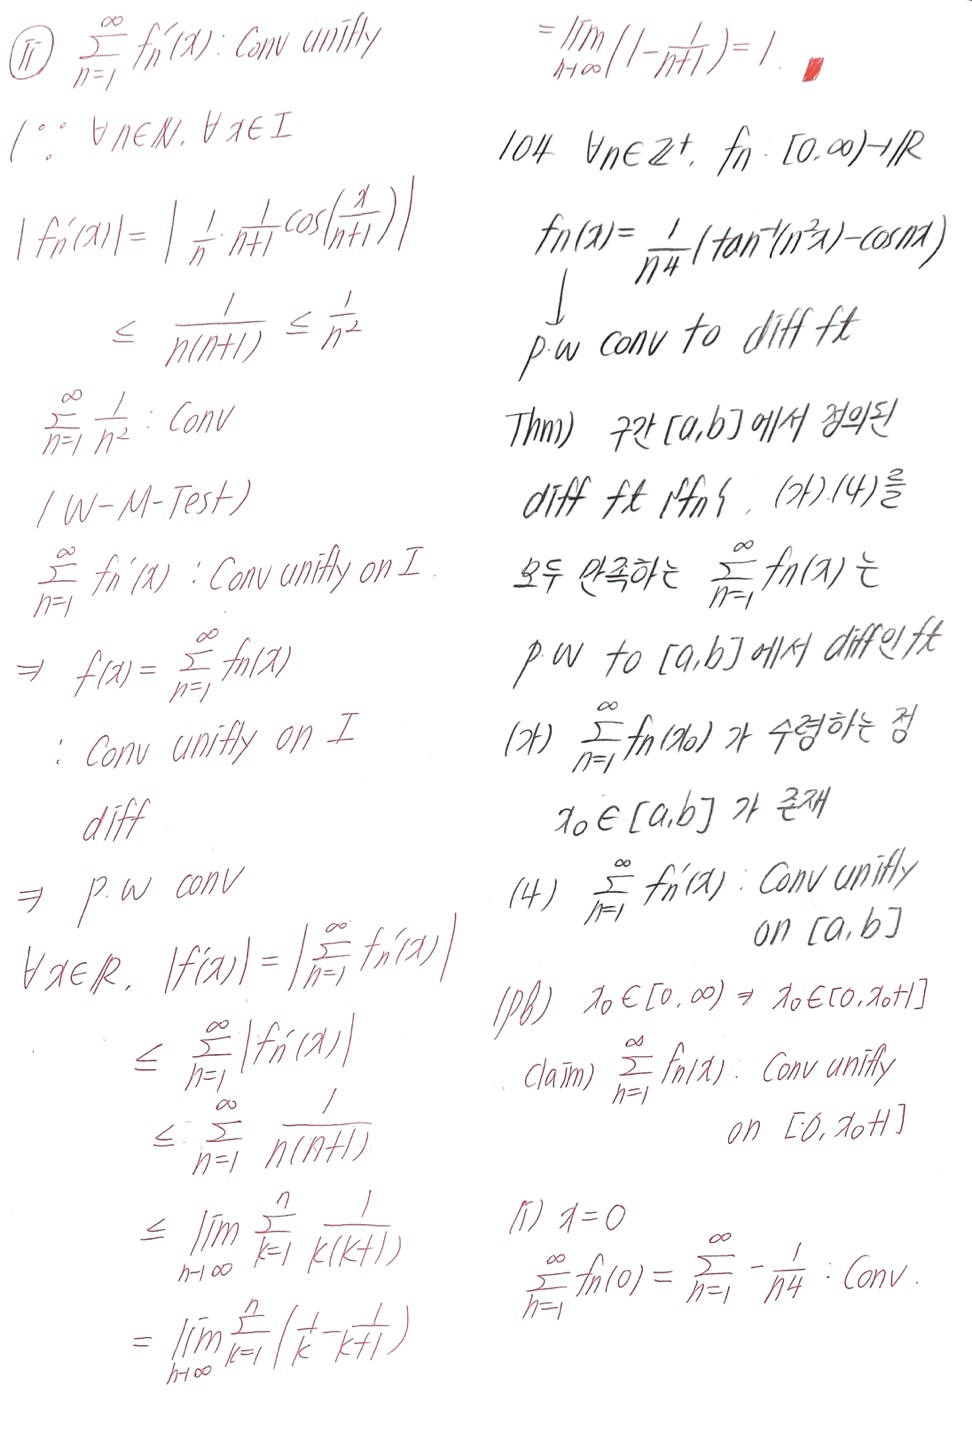 ⓘⓘ ∑_{n=1}^{∞} fn'(x) : Conv unifly
(∵ ∀n∈ℕ, ∀x∈I
|fn'(x)| = |1/n · 1/(n+1) cos(x/(n+1))|
≤ 1/(n(n+1)) ≤ 1/n²
∑_{n=1}^{∞} 1/n² : Conv
(W-M-Test)
∑_{n=1}^{∞} fn'(x) : Conv unifly on I.
⇒ f(x) = ∑_{n=1}^{∞} fn(x)
: Conv unifly on I
diff
⇒ p.w conv
∀x∈ℝ, |f'(x)| = |∑_{n=1}^{∞} fn'(x)|
≤ ∑_{n=1}^{∞} |fn'(x)|
≤ ∑_{n=1}^{∞} 1/(n(n+1))
≤ lim_{n→∞} ∑_{k=1}^{n} 1/(k(k+1))
= lim_{n→∞} ∑_{k=1}^{n} (1/k - 1/(k+1))
= lim_{n→∞} (1 - 1/(n+1)) = 1.
104 ∀n∈ℤ⁺, fn : [0,∞)→ℝ
fn(x) = 1/n4 (tan⁻¹(n²x) - cosnx)
↓
p.w conv to diff ft
Thm) 구간 [a,b]에서 정의된
diff ft {fn}, (가),(4)를
모두 만족하는 ∑_{n=1}^{∞} fn(x)는
p.w to [a,b]에서 diff인 ft
(가) ∑_{n=1}^{∞} fn(x₀)가 수렴하는 점
x₀∈[a,b]가 존재
(4) ∑_{n=1}^{∞} fn'(x) : Conv unifly
on [a,b]
(pf) x₀∈[0,∞) ⇒ x₀∈[0,x₀+1]
claim) ∑_{n=1}^{∞} fn(x) : Conv unifly
on [0,x₀+1]
(i) x=0
∑_{n=1}^{∞} fn(0) = ∑_{n=1}^{∞} -1/n4 : Conv.